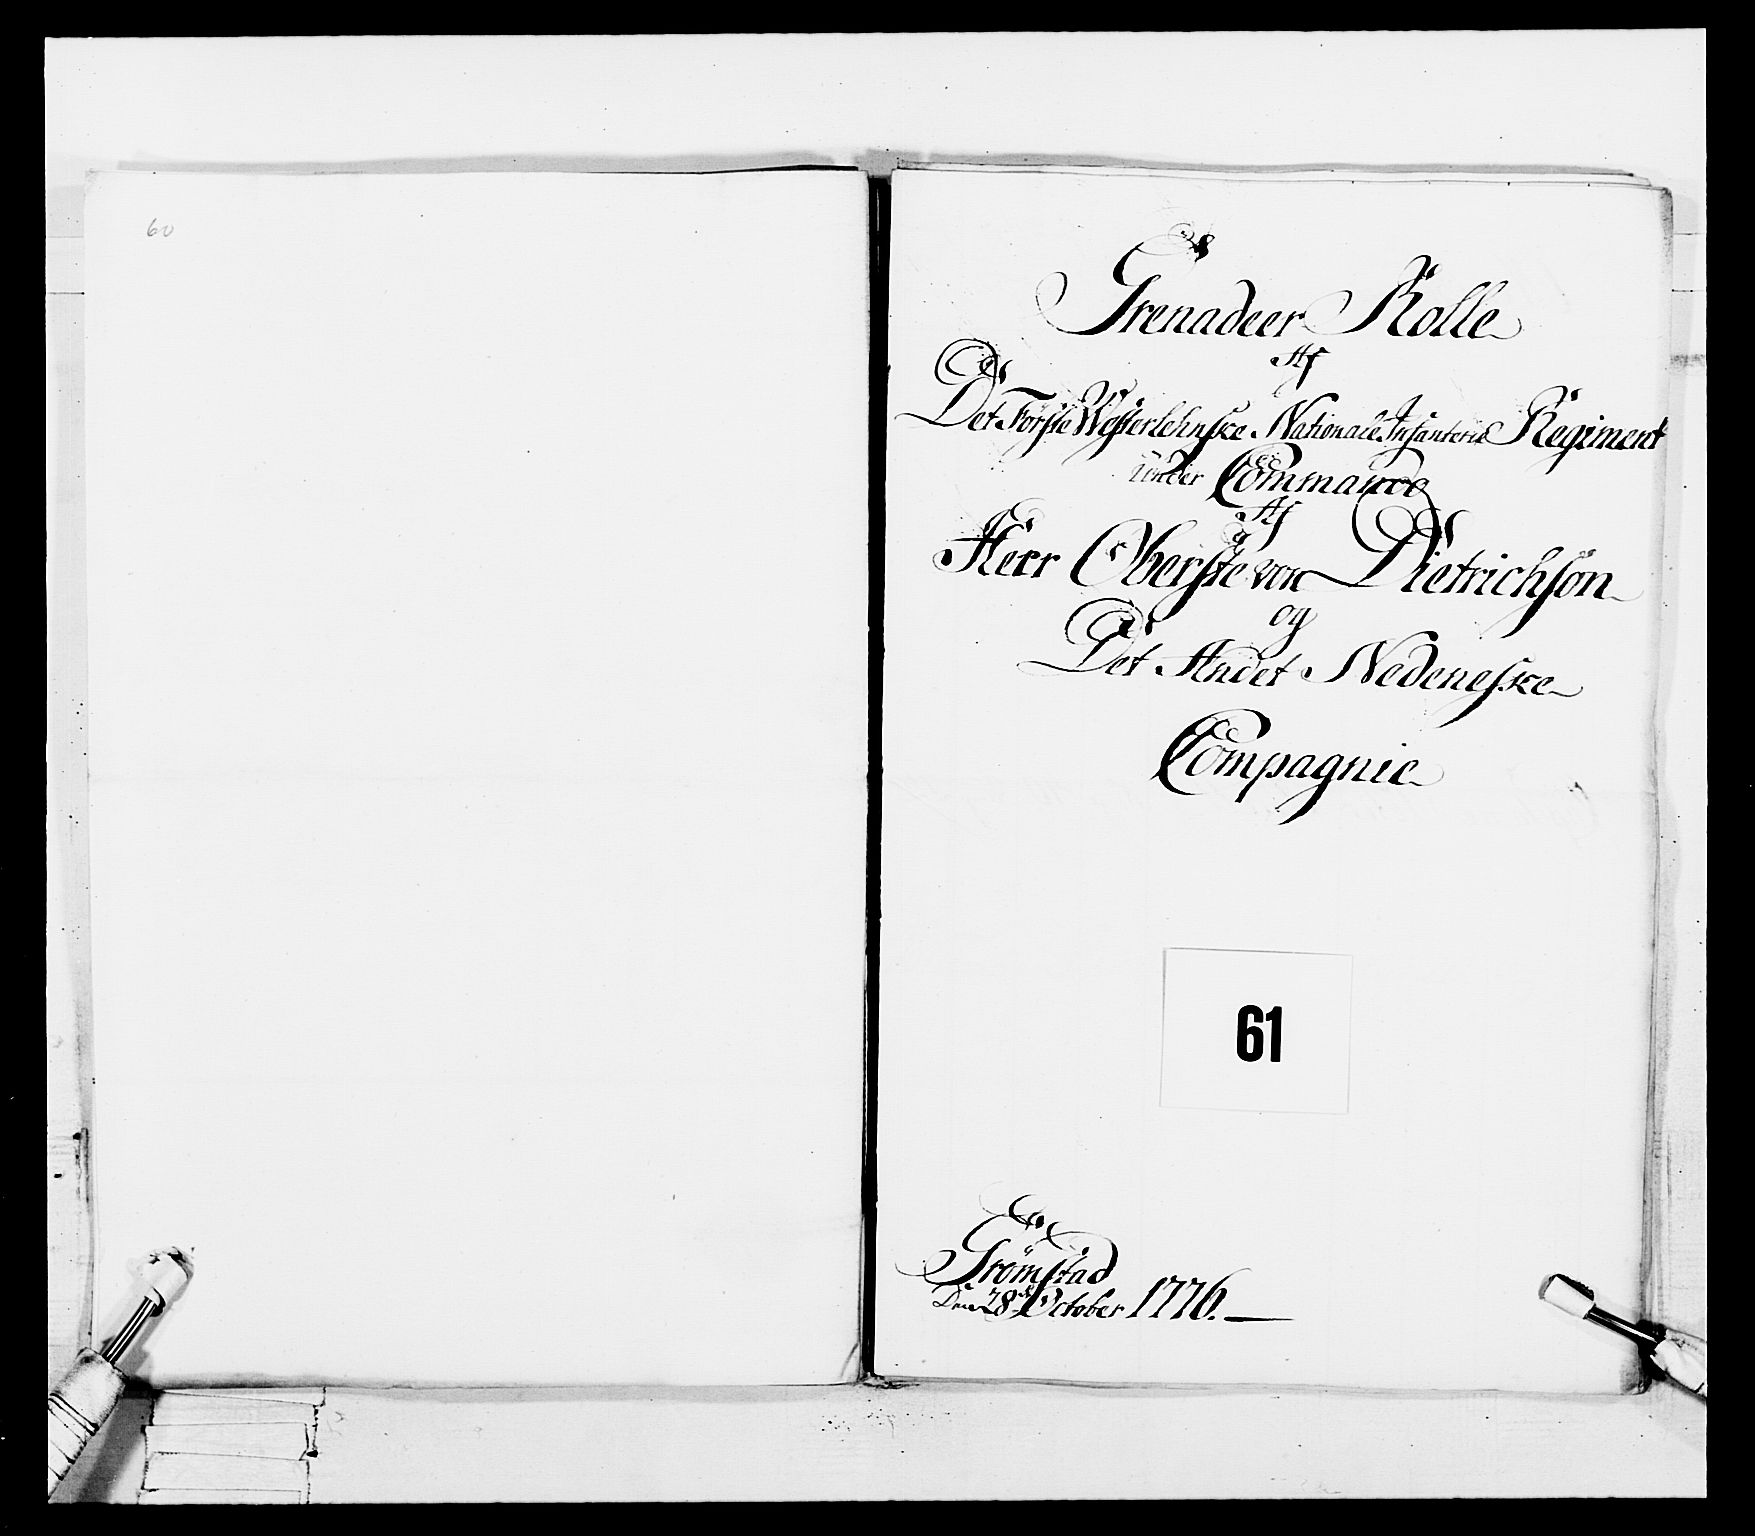 60
Grenadeer Rolle
Af
Det Förste Westerlehnske Nationale Infanterie Regiment
Under Commando
Af
Herr Oberste von Dietrichson
og
Det Andet Nedeneske
Compagnie
61
Grömstad
Den 28de October 1776.